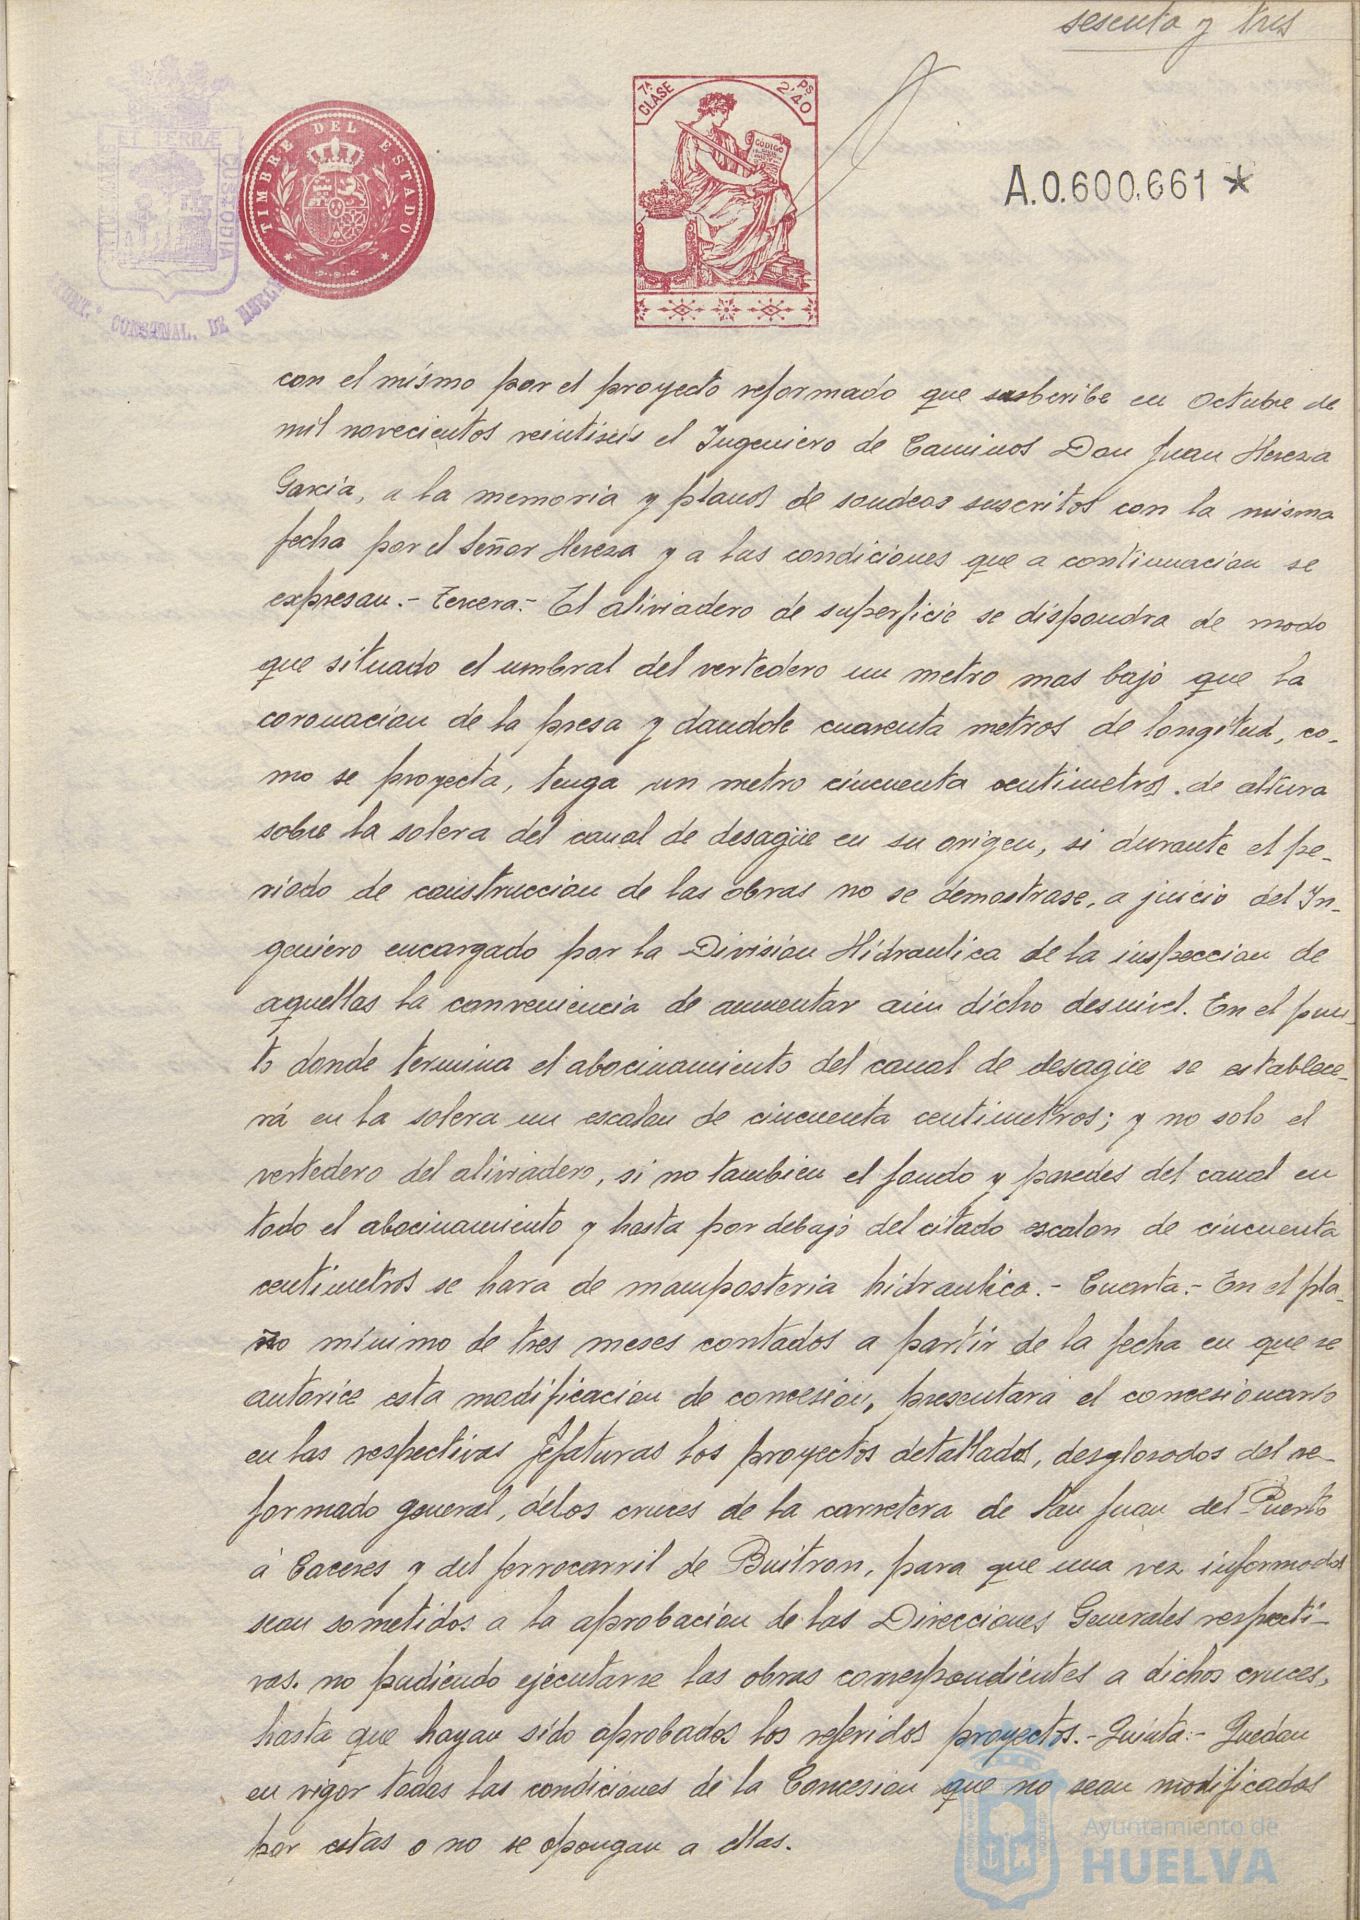 sesenta y tres
7ª CLASE
PS 2'40
CÓDIGO
TIMBRE DEL ESTADO
ET TERRÆ
CUSTODIA
CONSTNAL. DE HUELVA
A.0.600.661 *
con el mismo por el proyecto reformado que suscribe en Octubre de
mil novecientos veintiseis el Ingeniero de Caminos Don Juan Hereza
Garcia, a la memoria y planos de sondeos suscritos con la misma
fecha por el Señor Hereza y a las condiciones que a continuacion se
expresan.- Tercera.- El aliviadero de superficie se dispondra de modo
que situado el umbral del vertedero un metro mas bajo que la
coronacion de la presa y dandole cuarenta metros de longitud, co-
mo se proyecta, tenga un metro cincuenta centimetros de altura
sobre la solera del canal de desagüe en su origen, si durante el pe-
riodo de construccion de las obras no se demostrase, a juicio del In-
geniero encargado por la Division Hidraulica de la inspeccion de
aquellas la conveniencia de aumentar aún dicho desnivel. En el pun-
to donde termina el abocinamiento del canal de desagüe se establece-
rá en la solera un escalon de cincuenta centimetros; y no solo el
vertedero del aliviadero, si no tambien el fondo y paredes del canal en
todo el abocinamiento y hasta por debajo del citado escalon de cincuenta
centimetros se hara de mamposteria hidraulica.- Cuarta.- En el pla-
zo mínimo de tres meses contados a partir de la fecha en que se
autorice esta modificacion de concesion, presentará el concesionario
en las respectivas Jefaturas los proyectos detallados, desglosados del re-
formado general, delos cruces de la carretera de San Juan del Puerto
á Caceres y del ferrocarril de Buitron, para que una vez informados
sean sometidos a la aprobacion de las Direcciones Generales respecti-
vas. no pudiendo ejecutarse las obras correspondientes a dichos cruces,
hasta que hayan sido aprobados los referidos proyectos.- Quinta.- Quedan
en vigor todas las condiciones de la Concesion que no sean modificadas
por estas o no se opongan a ellas.
Ayuntamiento de
HUELVA